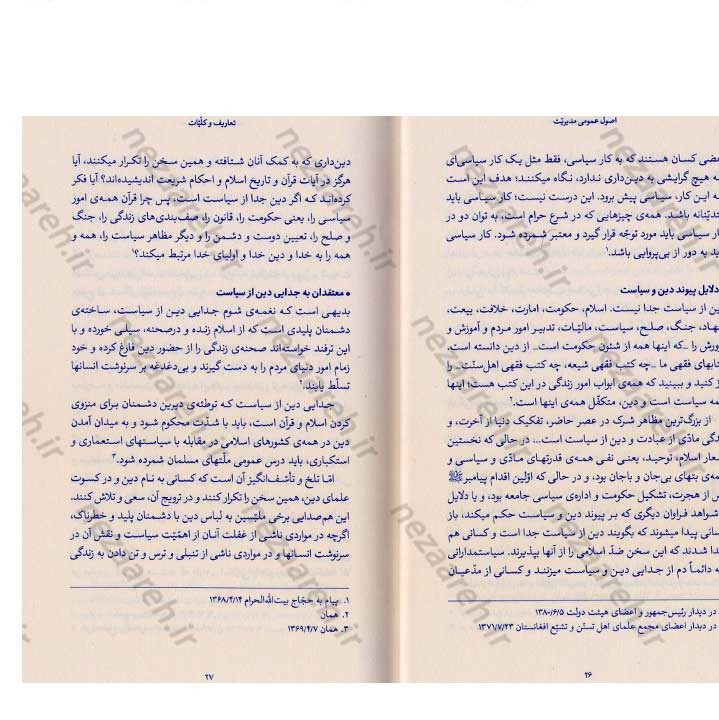 اصول عمومی مدیریّت
عضی کسان هستند که به کار سیاسی، فقط مثل یک کار سیاسی‌ای
ه هیچ گرایشی به دین‌داری ندارد، نگاه میکنند؛ هدف این است
ه این کار، سیاسی پیش برود. این درست نیست؛ کار سیاسی باید
دیّنانه باشد. همه‌ی چیزهایی که در شرع حرام است، به توان دو در
ار سیاسی باید مورد توجّه قرار گیرد و معتبر شمرده شود. کار سیاسی
ید به دور از بی‌پروایی باشد.۱
دلایل پیوند دین و سیاست
ین از سیاست جدا نیست. اسلام، حکومت، امارت، خلافت، بیعت،
هاد، جنگ، صلح، سیاست، مالیّات، تدبیر امور مردم و آموزش و
ورش را ـ که اینها همه از شئون حکومت است ـ از دین دانسته است،
تابهای فقهی ما ـ چه کتب فقهی شیعه، چه کتب فقهی اهل‌سنّت ـ را
ز کنید و ببینید که همه‌ی ابواب امور زندگی در این کتب هست؛ اینها
مه سیاست است و دین، متکفّل همه‌ی اینها است.۲
از بزرگ‌ترین مظاهر شرک در عصر حاضر، تفکیک دنیا از آخرت، و
دگی مادّی از عبادت و دین از سیاست است... در حالی که نخستین
عار اسلام، توحید، یعنی نفی همه‌ی قدرتهای مادّی و سیاسی و
مه‌ی بتهای بی‌جان و باجان بود، و در حالی که اوّلین اقدام پیامبرﷺ
س از هجرت، تشکیل حکومت و اداره‌ی سیاسی جامعه بود، و با دلایل
شواهد فراوان دیگری که بر پیوند دین و سیاست حکم میکند، باز
سانی پیدا میشوند که بگویند دین از سیاست جدا است و کسانی هم
دا شدند که این سخن ضدّ اسلامی را از آنها بپذیرند. سیاستمدارانی
ه دائماً دم از جدایی دین و سیاست میزنند و کسانی از مدّعیان
در دیدار رئیس‌جمهور و اعضای هیئت دولت ۱۳۸۰/۶/۵
در دیدار اعضای مجمع علمای اهل تسنّن و تشیّع افغانستان ۱۳۷۱/۷/۲۳
۲۶
تعاریف و کلّیّات
دین‌داری که به کمک آنان شتافته و همین سخن را تکرار میکنند، آیا
هرگز در آیات قرآن و تاریخ اسلام و احکام شریعت اندیشیده‌اند؟ آیا فکر
کرده‌اند که اگر دین جدا از سیاست است، پس چرا قرآن همه‌ی امور
سیاسی را، یعنی حکومت را، قانون را، صف‌بندی‌های زندگی را، جنگ
و صلح را، تعیین دوست و دشمن را و دیگر مظاهر سیاست را، همه و
همه را به خدا و دین خدا و اولیای خدا مرتبط میکند؟۱
• معتقدان به جدایی دین از سیاست
بدیهی است که نغمه‌ی شوم جدایی دین از سیاست، ساخته‌ی
دشمنان پلیدی است که از اسلام زنده و درصحنه، سیلی خورده و با
این ترفند خواسته‌اند صحنه‌ی زندگی را از حضور دین فارغ کرده و خود
زمام امور دنیای مردم را به دست گیرند و بی‌دغدغه بر سرنوشت انسانها
تسلّط یابند.۲
جدایی دین از سیاست که توطئه‌ی دیرین دشمنان برای منزوی
کردن اسلام و قرآن است، باید با شدّت محکوم شود و به میدان آمدن
دین در همه‌ی کشورهای اسلامی در مقابله با سیاستهای استعماری و
استکباری، باید درس عمومی ملّتهای مسلمان شمرده شود.۳
امّا تلخ و تأسّف‌انگیز آن است که کسانی به نام دین و در کسوت
علمای دین، همین سخن را تکرار کنند و در ترویج آن، سعی و تلاش کنند.
این هم‌صدایی برخی ملبّسین به لباس دین با دشمنان پلید و خطرناک،
اگرچه در مواردی ناشی از غفلت آنان از اهمّیّت سیاست و نقش آن در
سرنوشت انسانها و در مواردی ناشی از تنبلی و ترس و تن دادن به زندگی
۱. پیام به حجّاج بیت‌الله‌الحرام ۱۳۶۸/۴/۱۴
۲. همان
۳. همان ۱۳۶۹/۴/۷
۲۷
nezaareh.ir